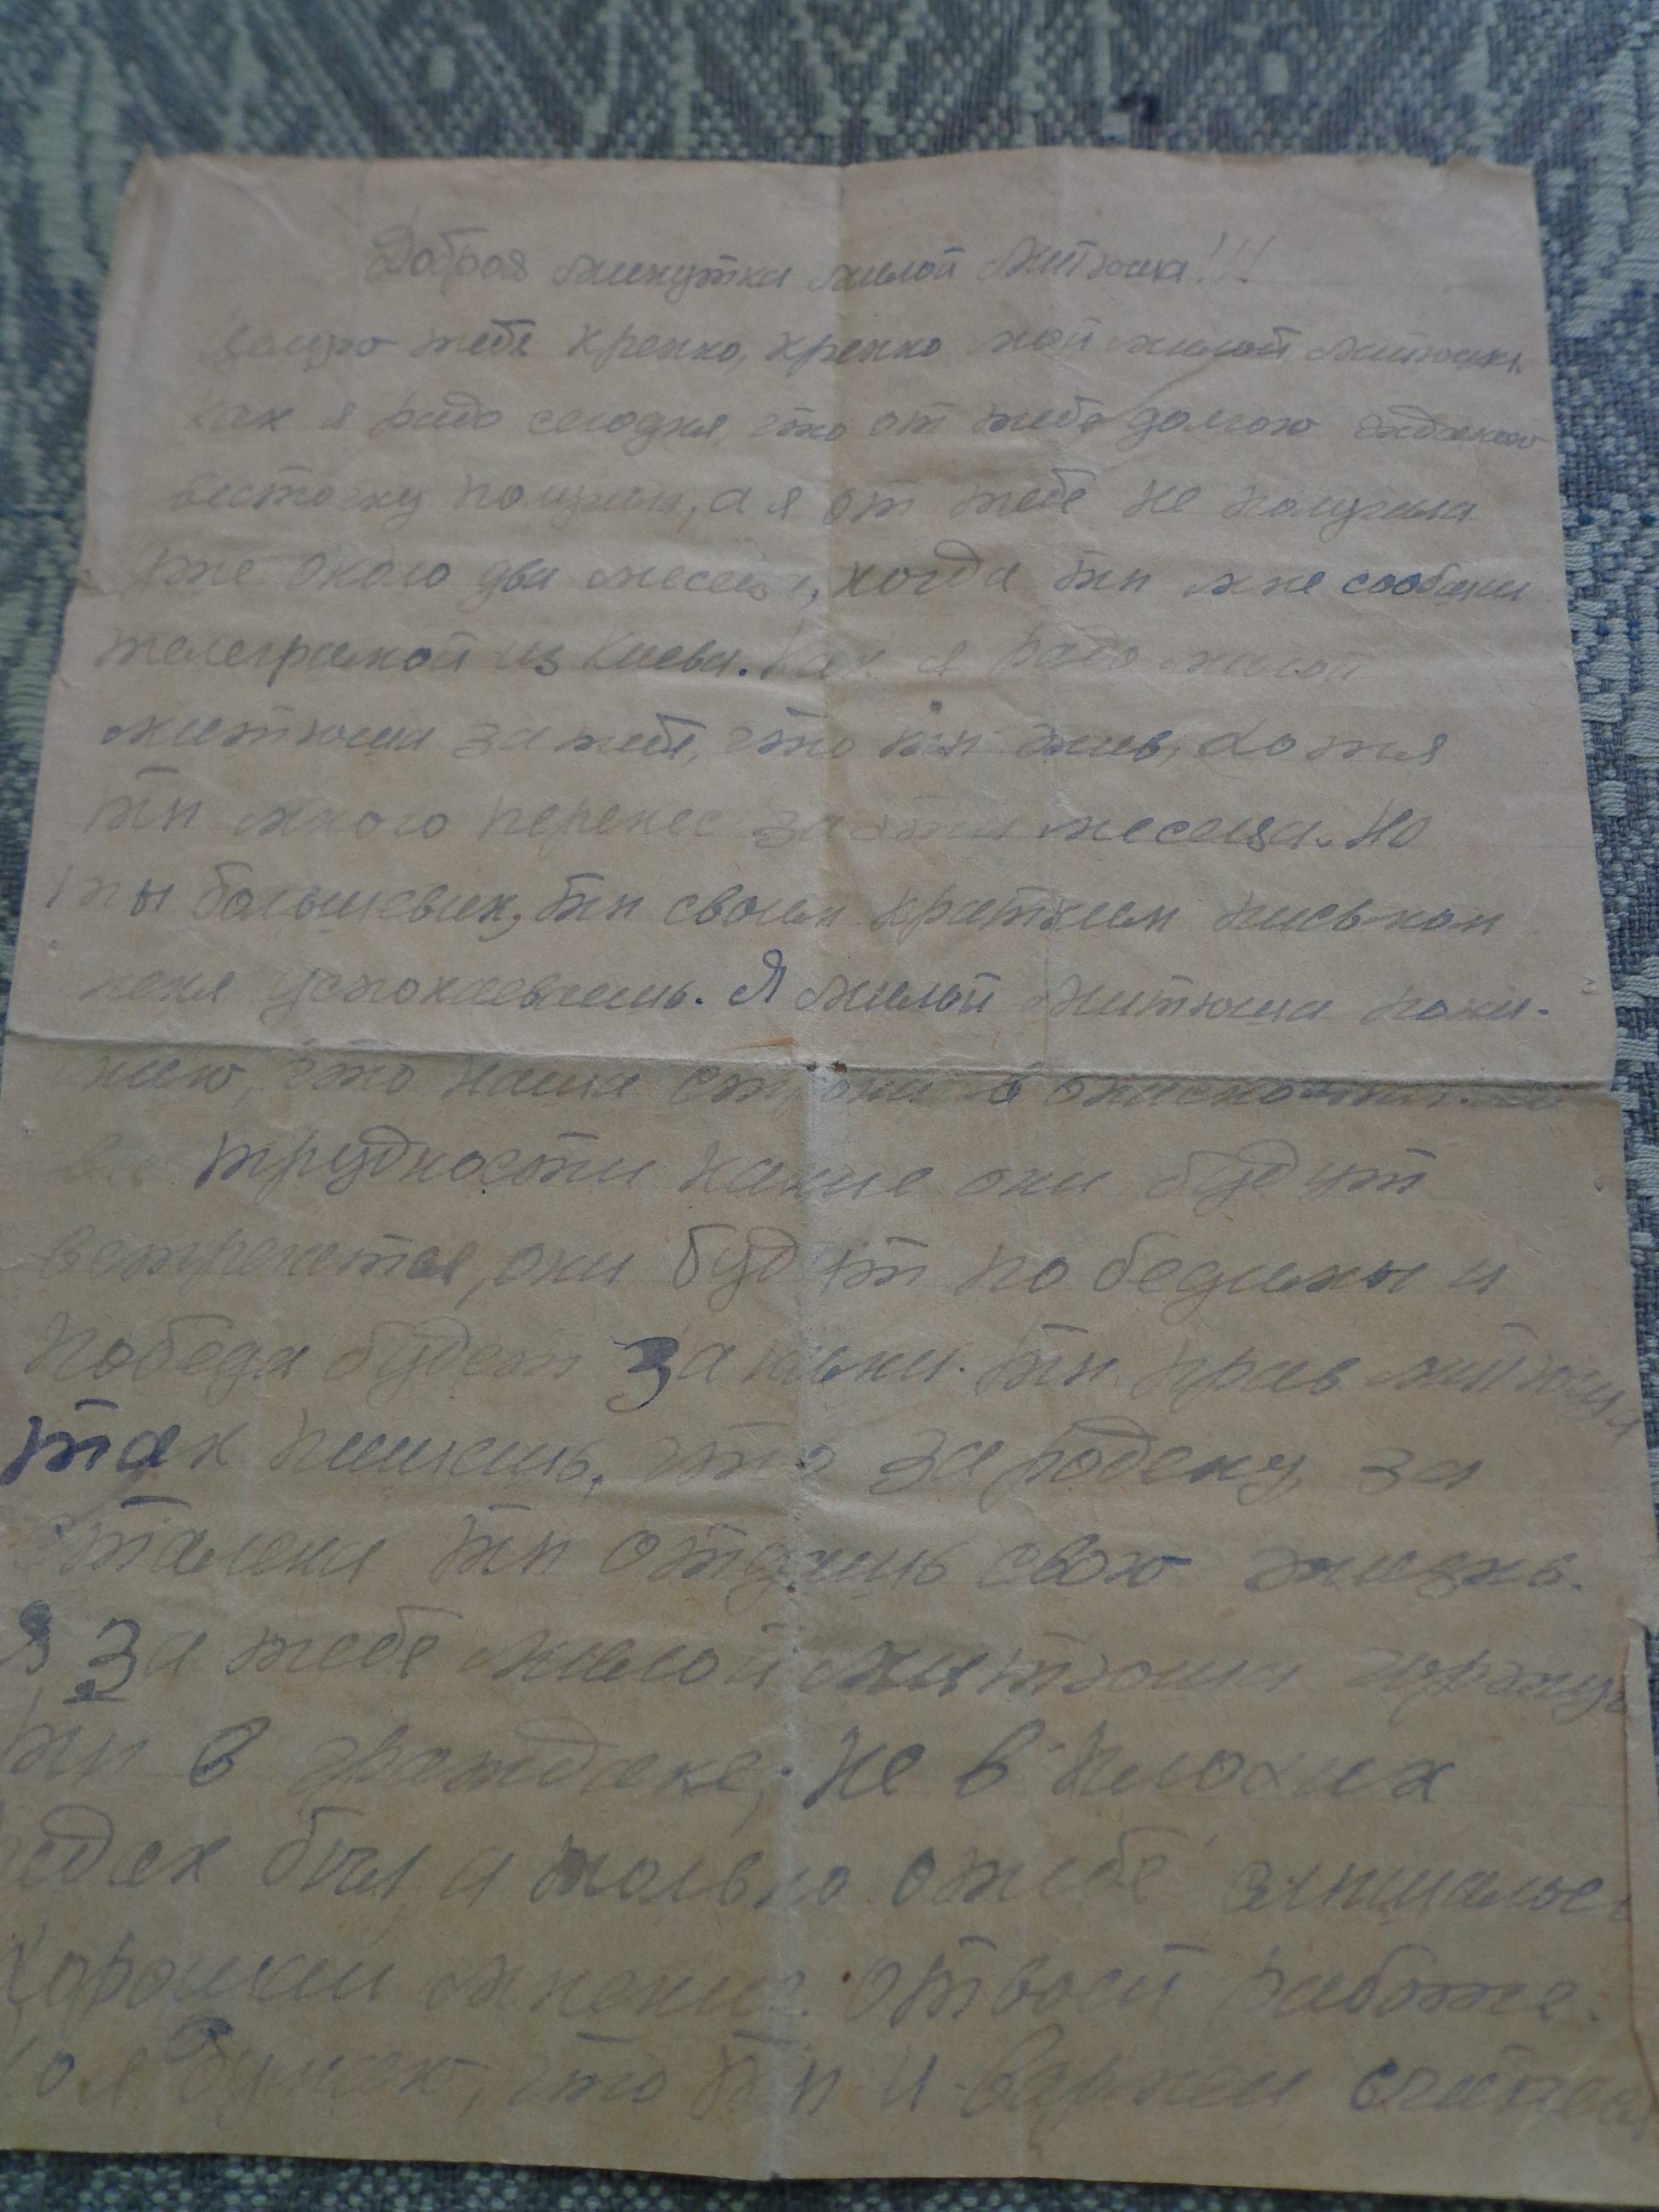 Добрая минутка милой Митюша!!!
Целую тебя крепко, крепко мой милой Митюша.
Как я рада сегодня, что от тебя долгою
весточку получила, а я от тебе не получила
уже около два месеца, когда ты мне сообщил
телеграмой из Киева. Как я рада милой
Митюша за тебе, что ты жив, хотя
ты много перенес за эти месеца. Но
ты большевик, ты своим кратким письмом
меня успокаеваешь. Я милой Митюша пони-
маю, что наша страна в опасности
все трудности какие они будут
встречатся, они будут победимы и
победа будет за нами. Ты прав Митюша
так пишешь, что за родену, за
Сталена ты отдашь свою жизнь.
Я за тебе милой Митюша горжусь
ты в граждане, не в плохих
рядах был, а только о тебе
хорошии мнения о твоей работе.
думаю, что ты и в армеи